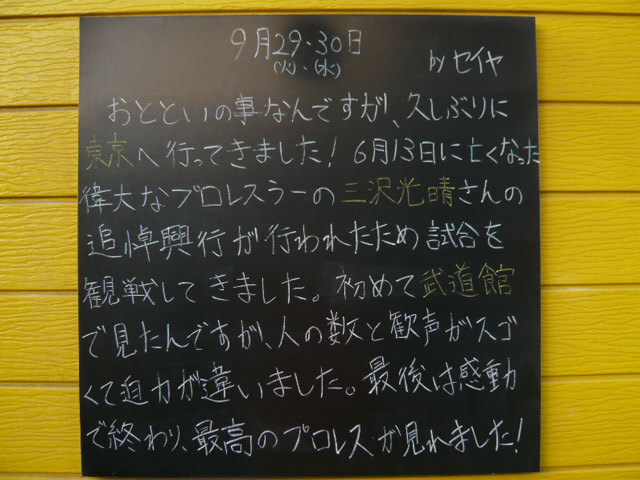 9月29・30日
(火)・(水)
by セイヤ
おとといの事なんですが、久しぶりに
東京へ行ってきました！6月13日に亡くなった
偉大なプロレスラーの三沢光晴さんの
追悼興行が行われたため試合を
観戦してきました。初めて武道館
で見たんですが、人の数と歓声がスゴ
くて迫力が違いました。最後は感動
で終わり、最高のプロレスが見れました！